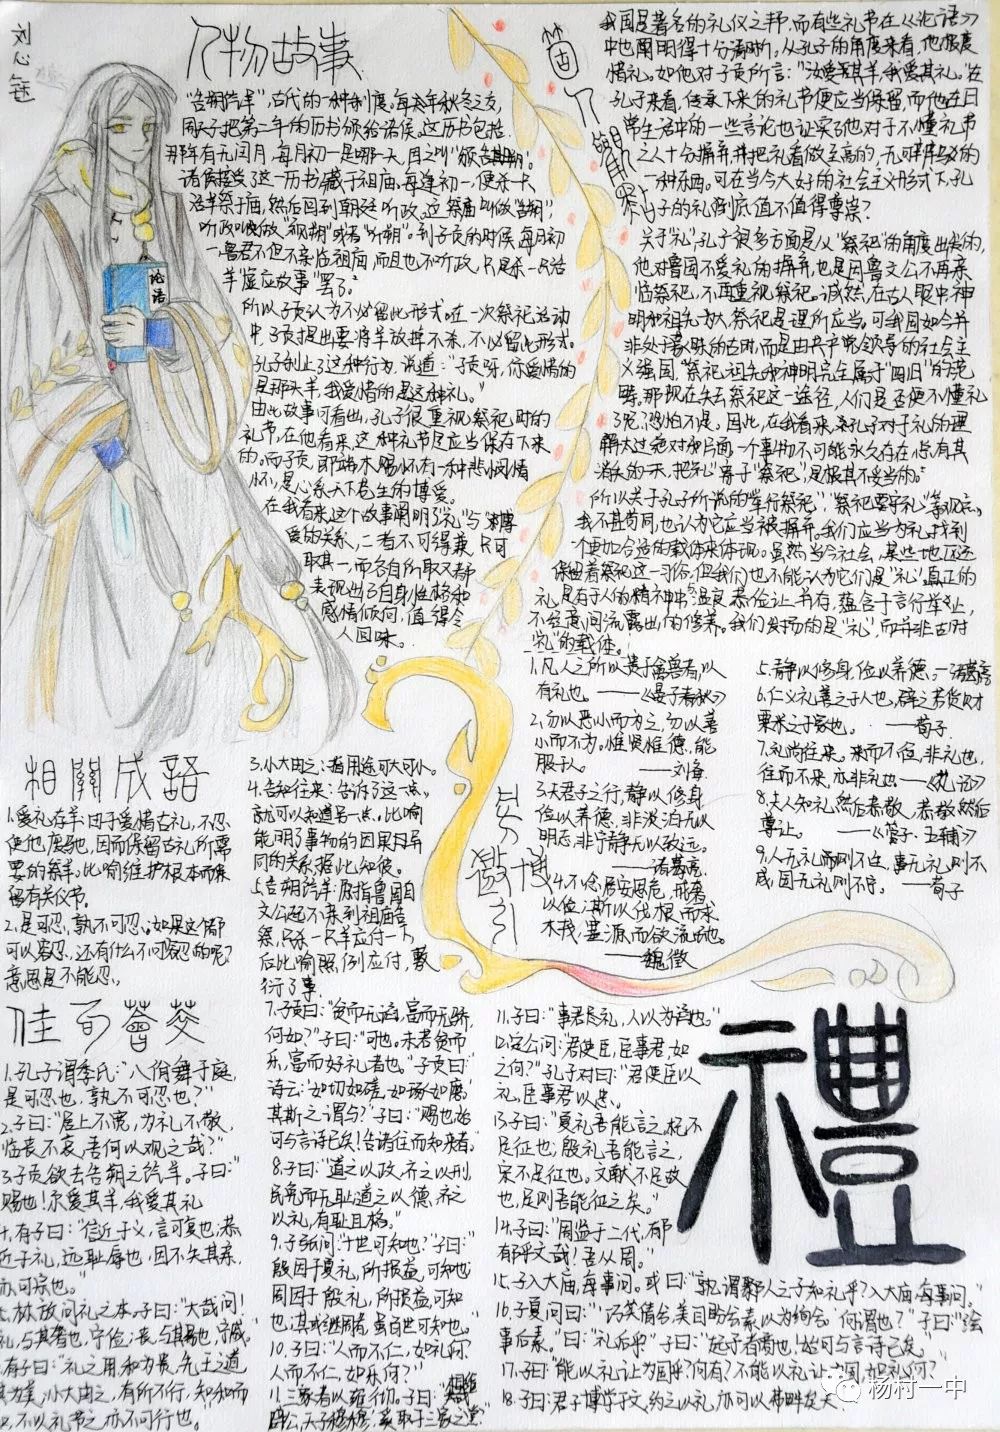 刘心钰
人物故事
"告朔饩羊",古代的一种制度。每太年秋冬之交,
周天子把第二年的历书颁给诸侯,这历书包括
那年有无闰月,每月初一是哪一天,因之叫"颁告朔"。
诸侯接受了这一历书,藏于祖庙。每逢初一,便杀一只
活羊祭于庙,然后回到朝廷听政。这祭庙叫做"告朔",
听政叫做"视朔"或者"听朔"。到子贡的时候,每月初
一鲁君不但不亲临祖庙,而且也不听政,只是杀一只活
羊"虚应故事"罢了。
所以子贡认为不必留此形式。在一次祭祀活动
中,子贡提出要将羊放掉不杀,不必留此形式。
孔子制止了这种行为,说道:"子贡呀,你爱惜的
是那头羊,我爱惜的是这种礼。"
由此故事可看出,孔子很重视祭祀时的
礼节,在他看来,这种礼节是应当保存下来
的。而子贡,即端木赐怀有一种悲悯情
怀,是心系天下苍生的博爱。
在我看来,这个故事阐明了"礼"与"博
爱的关系,二者不可得兼,只可
取其一,而各自所取又都
表现出了自身性格和
感情倾向,值得令
人回味。
论语
个人观点
我国是著名的礼仪之邦,而有些礼节在《论语》
中也阐明得十分清晰。从孔子的角度来看,他极度
惜礼。如他对子贡所言:"汝爱其羊,我爱其礼。"在
孔子来看,传承下来的礼节便应当保留,而他在日
常生活中的一些言论也证实了他对于不懂礼节
之人十分摒弃,并把礼看做至高的,无可替代的
一种东西。可在当今大好的社会主义形式下,孔
子的礼到底值不值得尊崇?
关于"礼",孔子很多方面是从"祭祀"的角度出发的,
他对鲁国不爱礼的摒弃,也是因鲁文公不再亲
临祭祀,不再重视祭祀。诚然,在古人眼中,神
明和祖先为大,祭祀是理所应当。可我国如今并
非处于蒙昧的古国,而是由共产党领导的社会主
义强国,"祭祀"祖先和神明完全属于"四旧"的范
畴。那现在失去祭祀这一途径,人们是否便不懂礼
了呢?恐怕不是。因此,在我看来,孔子对于礼的理
解太过绝对和片面,一个事物不可能永久存在,总有其
消失的一天,把"礼"寄于"祭祀",是极其不妥当的。
所以关于孔子所说的"举行祭祀","祭祀要守礼"等观点,
我不甚苟同,也认为它应当被摒弃。我们应当为礼找到
个更加合适的载体来体现。虽然当今社会,某些地区还
保留着祭祀这一习俗,但我们也不能认为它们是"礼"。真正的
礼,是存于人的精神中,温良恭俭让并存,蕴含于言行举止,
不经意间流露出的修养。我们发扬的是"礼",而并非古时
"礼"的载体。
旁徵博引
1.凡人之所以贵于禽兽者,以
有礼也。——《晏子春秋》
2.勿以恶小而为之,勿以善
小而不为。惟贤惟德,能
服于人。——刘备
3.夫君子之行,静以修身,
俭以养德,非淡泊无以
明志,非宁静无以致远。
——诸葛亮
4.不念居安思危,戒奢
以俭,斯以伐根而求
木茂,塞源而欲流长也。
——魏徵
5.静以修身,俭以养德。——诸葛亮
6.仁义礼善之于人也,辟之若货财
粟米之于家也。——荀子
7.礼尚往来。来而不往,非礼也,
往而不来,亦非礼也。——《礼记》
8.夫人知礼然后恭敬,恭敬然后
尊让。——《管子·五辅》
9.人无礼而刚不生,事无礼则不
成,国无礼则不宁。——荀子
相關成語
1.爱礼存羊:由于爱惜古礼,不忍
使他废弛,因而保留古礼所需
要的祭羊。比喻维护根本而保
留有关仪节。
2.是可忍,孰不可忍:如果这个都
可以容忍,还有什么不可容忍的呢?
意思是不能忍。
3.小大由之:指用途可大可小。
4.告知往来:告诉了这一点,
就可以知道另一点。比喻
能明了事物的因果同异
的关系,据此知彼。
5.告朔饩羊:原指鲁国自
文公起不亲到祖庙告
祭,只杀一只羊应付一下。
后比喻照例应付,敷
衍了事。
佳句薈萃
1.孔子谓季氏:"八佾舞于庭,
是可忍也,孰不可忍也?"
2.子曰:"居上不宽,为礼不敬,
临丧不哀,吾何以观之哉?"
3.子贡欲去告朔之饩羊。子曰:"
赐也!尔爱其羊,我爱其礼
4.有子曰:"信近于义,言可复也,恭
近于礼,远耻辱也,因不失其亲,
亦可宗也。"
5.林放问礼之本。子曰:"大哉问!
礼,与其奢也,宁俭;丧,与其易也,宁戚。"
有子曰:"礼之用,和为贵。先王之道,
斯为美,小大由之,有所不行,知和而
和,不以礼节之,亦不可行也。"
7.子贡曰:"贫而无谄,富而无骄,
何如?"子曰:"可也。未若贫而
乐,富而好礼者也。"子贡曰:
诗云:'如切如磋,如琢如磨',
其斯之谓与?"子曰:"赐也,始
可与言诗已矣!告诸往而知来者。"
8.子曰:"道之以政,齐之以刑,
民免而无耻;道之以德,齐之
以礼,有耻且格。"
9.子张问:"十世可知也?"子曰:
殷因于夏礼,所损益,可知也;
周因于殷礼,所损益,可知
也;其或继周者,虽百世可知也。"
10.子曰:"人而不仁,如礼何?
人而不仁,如乐何?"
11.三家者以雍彻。子曰:"相维
辟公,天子穆穆',奚取于三家之堂
11.子曰:"事君尽礼,人以为谄也。"
12.定公问:"君使臣,臣事君,如
之何?"孔子对曰:"君使臣以
礼,臣事君以忠。
13.子曰:"夏礼吾能言之,杞不
足征也;殷礼吾能言之,
宋不足征也。文献不足故
也,足则吾能征之矣。"
14.子曰:"周监于二代,郁
郁乎文哉!吾从周。"
15.子入大庙,每事问。或曰:"孰谓鄹人之子知礼乎?入大庙,每事问。"
16.子夏问曰:"'巧笑倩兮,美目盼兮,素以为绚兮'何谓也?"子曰:"绘
事后素。"曰:"礼后乎?"子曰:"起予者商也!始可与言诗已矣。"
17.子曰:"能以礼让为国乎?何有?不能以礼让为国,如礼何?
18.子曰:君子博学于文,约之以礼,亦可以弗畔矣夫!
禮
杨村一中